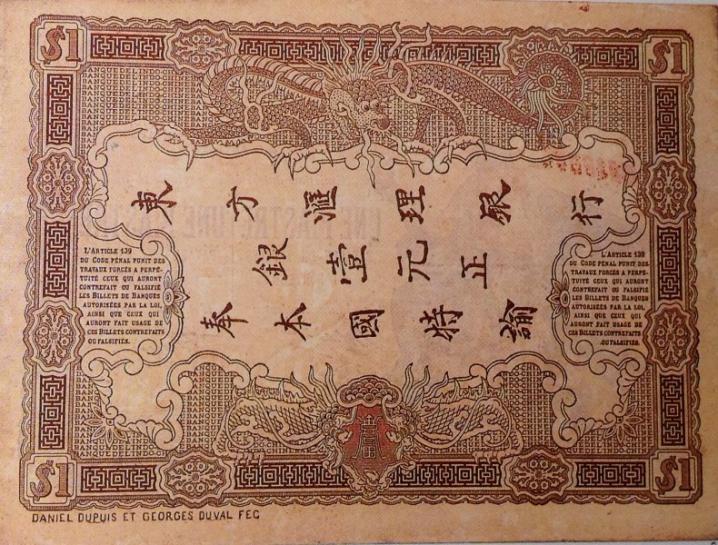 $1
$1
東方滙理銀行
銀壹元正
奉本國特諭
L'ARTICLE 139
DU CODE PÉNAL PUNIT DES
TRAVAUX FORCÉS A PERPÉ-
TUITÉ CEUX QUI AURONT
CONTREFAIT OU FALSIFIÉ
LES BILLETS DE BANQUES
AUTORISÉES PAR LA LOI,
AINSI QUE CEUX QUI
AURONT FAIT USAGE DE
CES BILLETS CONTREFAITS
OU FALSIFIÉS.
L'ARTICLE 139
DU CODE PÉNAL PUNIT DES
TRAVAUX FORCÉS A PERPÉ-
TUITÉ CEUX QUI AURONT
CONTREFAIT OU FALSIFIÉ
LES BILLETS DE BANQUES
AUTORISÉES PAR LA LOI,
AINSI QUE CEUX QUI
AURONT FAIT USAGE DE
CES BILLETS CONTREFAITS
OU FALSIFIÉS.
$1
$1
DANIEL DUPUIS ET GEORGES DUVAL FEC